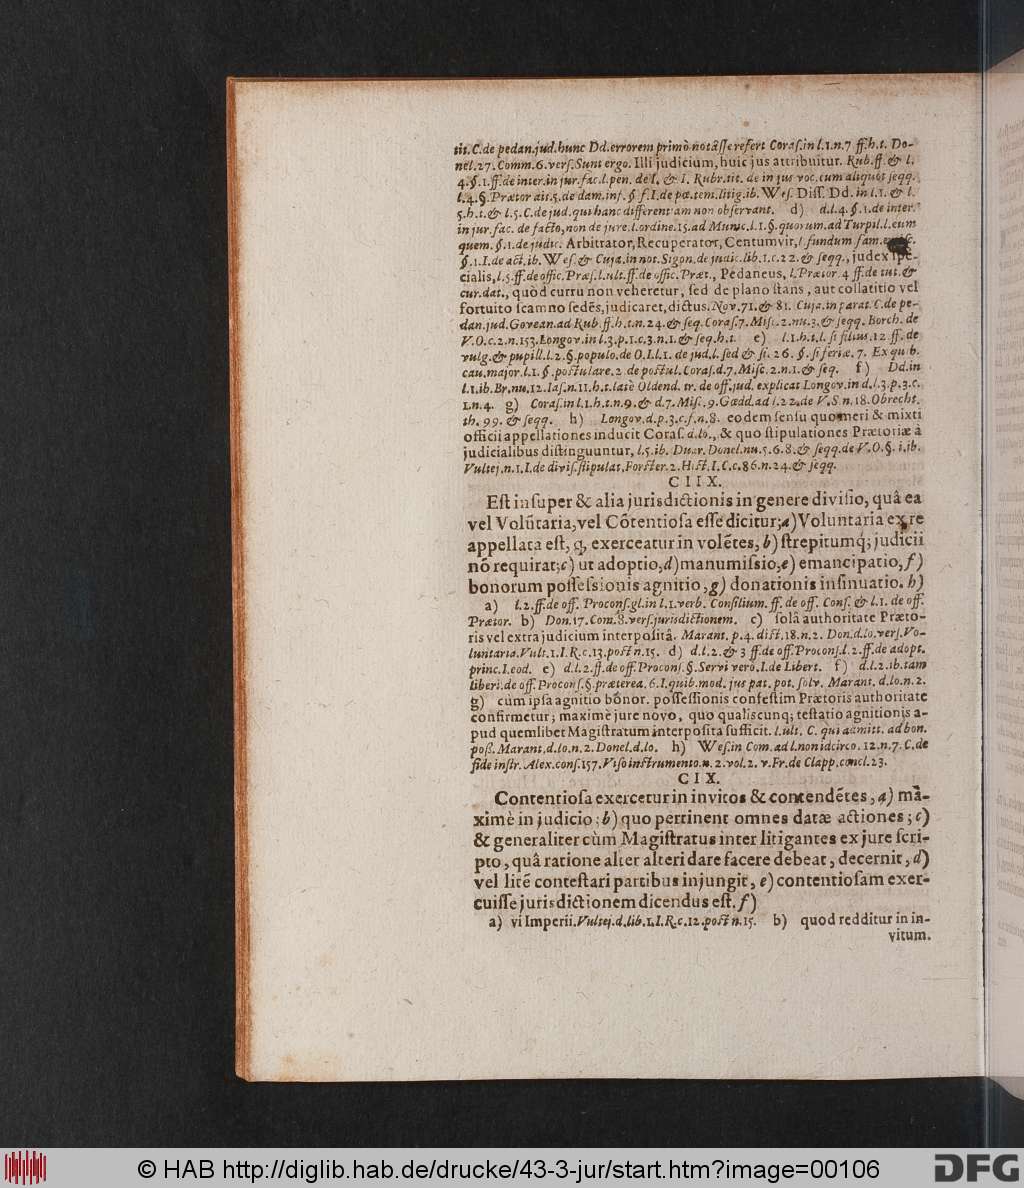 tit. C. de pedan. jud. hunc Dd. errorem primò notâsse refert Coraſ. in l. 1. n. 7 ff. h. t. Do-
nel. 27. Comm. 6. verſ. Sunt ergo. Illi judicium, huic jus attribuitur. Rub. ff. & l.
4. §. 1. ff. de inter. in jur. fac. l. pen. de I. & I. Rubr. tit. de in jus voc. cum aliquot ſeqq.
l. 4. §. Prætor ait. 5. de dam. inf. § f. I. de pœ. tem. litig. ib. Weſ. Diſſ. Dd. in l. 1. & l.
5. h. t. & l. 5. C. de jud. qui hanc differentiam non obſervant. d) d. l. 4. §. 1. de inter.
in jur. fac. de facto, non de jure. l. ordine. 15. ad Munic. l. 1. §. quorum. ad Turpil. l. cum
quem. §. 1. de judic. Arbitrator, Recuperator, Centumvir, l. fundum fam.
§. 1. I. de act. ib. Weſ. & Cuja. in not. Sigon. de judic. lib. 1. c. 22. & ſeqq., judex ſpe-
cialis, l. 5. ff. de offic. Præſ. l. ult. ff. de offic. Præt., Pedaneus, l. Prætor. 4 ff. de tut. &
cur. dat., quòd curru non veheretur, ſed de plano ſtans, aut collatitio vel
fortuito ſcamno ſedẽs, judicaret, dictus. Nov. 71. & 81. Cuja. in parat. C. de pe-
dan. jud. Govean. ad Rub. ff. h. t. n. 24. & ſeq. Coraſ. 7. Miſc. 2. nu. 3. & ſeqq. Borch. de
V. O. c. 2. n. 153. Longov. in l. 3. p. 1. c. 3. n. 1. & ſeq. h. 1. e) l. 1. h. t. l. ſi filius. 12. ff. de
vulg. & pupill. l. 2. §. populo. de O. I. l. 1. de jud. l. ſed & ſi. 26. §. ſi feriæ. 7. Ex quib.
cau. major. l. 1. § poſtulare. 2 de poſtul. Coraſ. d. 7. Miſc. 2. n. 1. & ſeq. f) Dd. in
l. 1. ib. Br. nu. 12. Iaſ. n. 11. h. t. latè Oldend. tr. de off. jud. explicat Longov. in d. l. 3. p. 3. c.
1. n. 4. g) Coraſ. in l. 1. h. t. n. 9. & d. 7. Miſ. 9. Gœdd. ad l. 22. de V. S. n. 18. Obrecht.
th. 99. & ſeqq. h) Longov. d. p. 3. c. f. n. 8. eodem ſenſu quo meri & mixti
officii appellationes inducit Coraſ. d. lo., & quo ſtipulationes Prætoriæ à
judicialibus diſtinguuntur, l. 5. ib. Duar. Donel. nu. 5. 6. 8. & ſeqq. de V. O. §. 1. ib.
Vultej. n. 1. I. de diviſ. ſtipulat. Forſter. 2. Hiſt. I. C. c. 86. n. 24. & ſeqq.
C I I X.
Eſt inſuper & alia jurisdictionis in genere diviſio, quâ ea
vel Volũtaria, vel Cõtentioſa eſſe dicitur; a) Voluntaria ex re
appellata eſt, q, exerceatur in volẽtes, b) ſtrepitumq́; judicii
nõ requirat; c) ut adoptio, d) manumiſsio, e) emancipatio, f)
bonorum poſſeſsionis agnitio, g) donationis inſinuatio. h)
a) l. 2. ff. de off. Proconſ. gl. in l. 1. verb. Conſilium. ff. de off. Conſ. & l. 1. de off.
Prætor. b) Don. 17. Com. 8. verſ. jurisdictionem. c) ſolâ authoritate Præto-
ris vel extra judicium interpoſitâ. Marant. p. 4. diſt. 18. n. 2. Don. d. lo. verſ. Vo-
luntaria. Vult. 1. I. R. c. 13. poſt n. 15. d) d. l. 2. & 3 ff. de off. Proconſ. l. 2. ff. de adopt.
princ. I. eod. e) d. l. 2. ff. de off. Proconſ. §. Servi verò. I. de Libert. f) d. l. 2. ib. tam
liberi. de off. Proconſ. §. præterea. 6. I. quib. mod. jus pat. pot. ſolv. Marant. d. lo. n. 2.
g) cum ipſa agnitio bonor. poſſeſſionis confeſtim Prætoris authoritate
confirmetur; maximè jure novo, quo qualiscunq; teſtatio agnitionis a-
pud quemlibet Magiſtratum interpoſita ſufficit. l. ult. C. qui admitt. ad bon.
poſſ. Marant. d. lo. n. 2. Donel. d. lo. h) Weſ. in Com. ad l. non idcirco. 12. n. 7. C. de
fide inſtr. Alex. conſ. 157. Viſo inſtrumento. n. 2. vol. 2. v. Fr. de Clapp. concl. 23.
C I X.
Contentioſa exercetur in invitos & contendẽtes, a) ma-
ximè in judicio; b) quo pertinent omnes datæ actiones; c)
& generaliter cùm Magiſtratus inter litigantes ex jure ſcri-
pto, quâ ratione alter alteri dare facere debeat, decernit, d)
vel litẽ conteſtari partibus injungit, e) contentioſam exer-
cuiſſe jurisdictionem dicendus eſt. f)
a) vi Imperii. Vultej. d. lib. 1. I. R. c. 12. poſt n. 15. b) quod redditur in in-
vitum.
© HAB http://diglib.hab.de/drucke/43-3-jur/start.htm?image=00106
DFG